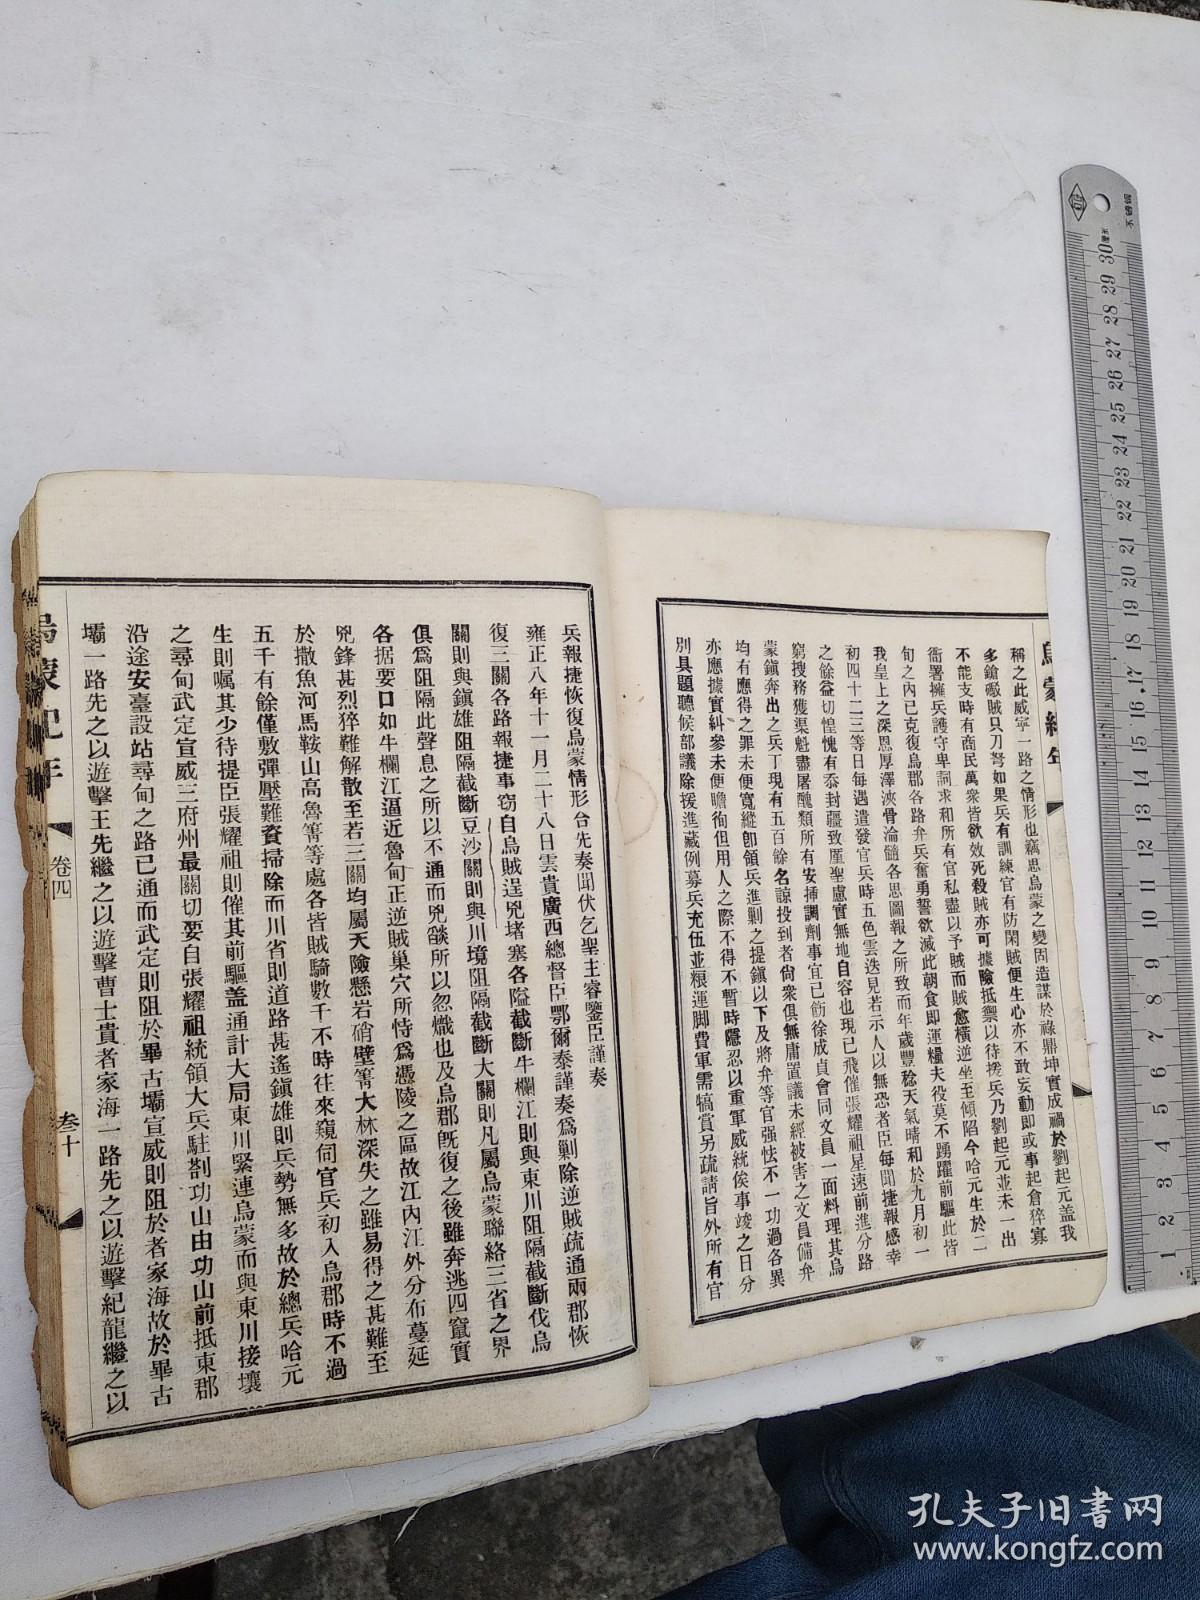 烏蒙紀年
稱之此威寧一路之情形也竊思烏蒙之變固造謀於祿鼎坤實成禍於劉起元盖我
多鎗礮賊只刀弩如果兵有訓練官有防閑賊便生心亦不敢妄動即或事起倉猝寡
不能支時有商民萬衆皆欲效死殺賊亦可據險抵禦以待援兵乃劉起元並未一出
衙署擁兵護守卑詞求和所有官私盡以予賊而賊愈橫逆坐至傾陷今哈元生於二
旬之內已克復烏郡各路弁兵奮勇誓欲滅此朝食即運糧夫役莫不踴躍前驅此皆
我皇上之深恩厚澤浹骨淪髓各思圖報之所致而年歲豐稔天氣晴和於九月初一
初四十二三等日每遇遣發官兵時五色雲迭見若示人以無恐者臣每聞捷報感幸
之餘益切惶愧有忝封疆致厪聖慮實無地自容也現已飛催張耀祖星速前進分路
窮搜務獲渠魁盡屠醜類所有安揷調劑事宜已飭徐成貞會同文員一面料理其烏
蒙鎭奔出之兵丁現有五百餘名諒投到者尙衆俱無庸置議未經被害之文員備弁
均有應得之罪未便寬縱卽領兵進剿之提鎭以下及將弁等官强怯不一功過各異
亦應據實糾參未便瞻徇但用人之際不得不暫時隱忍以重軍威統俟事竣之日分
別具題聽候部議除援進藏例募兵充伍並粮運脚費軍需犒賞另疏請旨外所有官
兵報捷恢復烏蒙情形合先奏聞伏乞聖主睿鑒臣謹奏
雍正八年十一月二十八日雲貴廣西總督臣鄂爾泰謹奏爲剿除逆賊疏通兩郡恢
復三關各路報捷事竊自烏賊逞兇堵塞各隘截斷牛欄江則與東川阻隔截斷伐烏
關則與鎭雄阻隔截斷豆沙關則與川境阻隔截斷大關則凡屬烏蒙聯絡三省之界
俱爲阻隔此聲息之所以不通而兇燄所以忽熾也及烏郡旣復之後雖奔逃四竄實
各据要口如牛欄江逼近魯甸正逆賊巢穴所恃爲憑陵之區故江內江外分布蔓延
兇鋒甚烈猝難解散至若三關均屬天險懸岩硝壁箐大林深失之雖易得之甚難至
於撒魚河馬鞍山高魯箐等處各皆賊騎數千不時往來窺伺官兵初入烏郡時不過
五千有餘僅敷彈壓難資掃除而川省則道路甚遙鎭雄則兵勢無多故於總兵哈元
生則嘱其少待提臣張耀祖則催其前驅盖通計大局東川緊連烏蒙而與東川接壤
之尋甸武定宣威三府州最關切要自張耀祖統領大兵駐剳功山由功山前抵東郡
沿途安臺設站尋甸之路已通而武定則阻於畢古壩宣威則阻於者家海故於畢古
壩一路先之以遊擊王先繼之以遊擊曹士貴者家海一路先之以遊擊紀龍繼之以
烏蒙紀年
卷四
叁十
孔夫子旧书网
www.kongfz.com
30 29 28 27 26 25 24 23 22 21 20 19 18 17 16 15 14 13 12 11 10 9 8 7 6 5 4 3 2 1